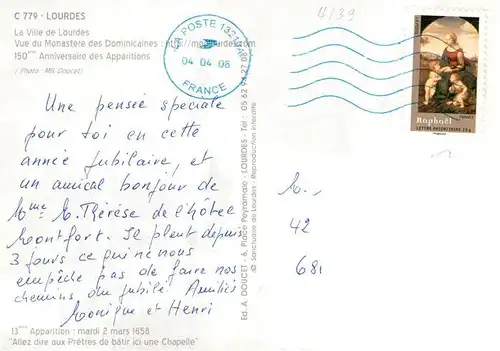 C 779 - LOURDES
La Ville de Lourdes
Vue du Monastere des Dominicaines :
150ème Anniversaire des Apparitions
( Photo : MB. Doucet)
LA POSTE
04 04 08
FRANCE
4/39
Raphaël
FRANCE
LETTRE PRIORITAIRE 20 g
Une pensée spéciale
pour toi en cette
année jubilaire, et
un amical bonjour de
Mme M. Thérèse de l'hôtel
Montfort. Il pleut depuis
3 jours ce qui ne nous
empêche pas de faire nos
chemins du jubilé. Amitiés
Monique et Henri
13ème Apparition : mardi 2 mars 1658
"Allez dire aux Prêtres de bâtir ici une Chapelle"
Ed. A. DOUCET - 6, Place Peyramale - LOURDES - Tél : 05 62 94 27 08
© Sanctuaire de Lourdes - Reproduction interdite
42
681